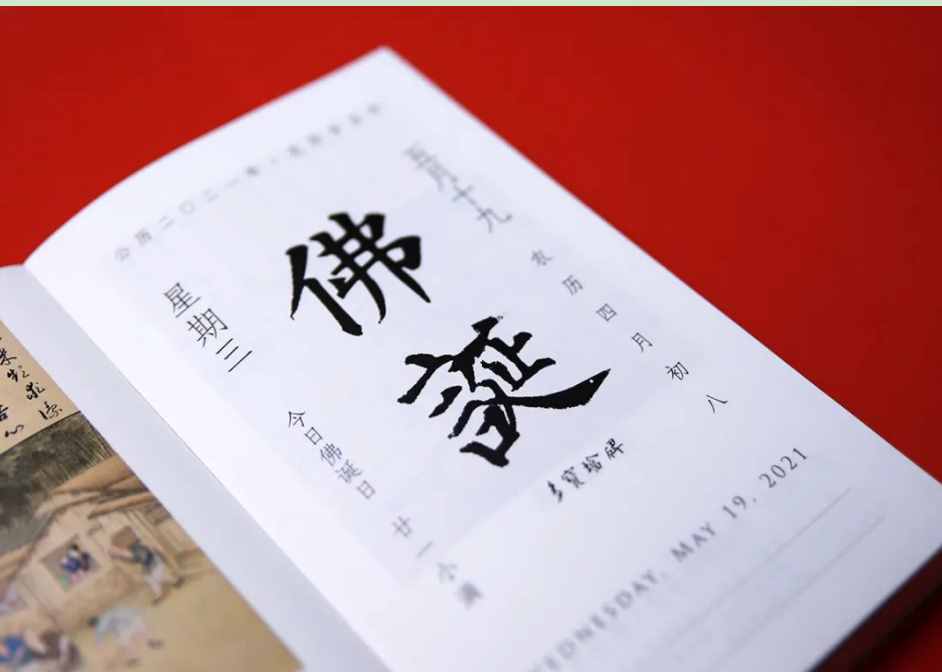 公历二〇二一年
五月十九
农历四月初八
佛誕
星期三
今日佛诞日
廿一小满
多寶塔碑
WEDNESDAY, MAY 19, 2021